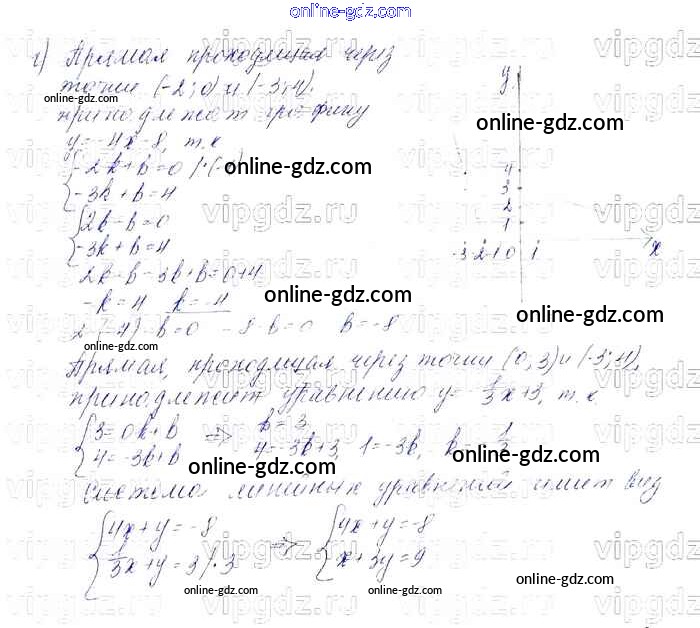 online-gdz.com
г) Прямая проходящая через
точки (-2; 0) и (-3; 4),
online-gdz.com
принадлежат графику
online-gdz.com
y = -4x - 8, т.к
{-2k + b = 0 | · (-1)
online-gdz.com
-3k + b = 4
{2k - b = 0
-3k + b = 4
2k - b - 3k + b = 0 + 4
-k = 4 k = -4
online-gdz.com
2 · (-4) - b = 0 -8 - b = 0 b = -8
online-gdz.com
online-gdz.com
y
4
3
2
1
-3 -2 -1 0 1 x
Прямая, проходящая через точки (0, 3) и (-3; 4),
принадлежит уравнению y = -1/3x + 3, т.к
{3 = 0k + b => b = 3
4 = -3k + b 4 = -3k + 3, 1 = -3k, k = -1/3
online-gdz.com
online-gdz.com
Система линейных уравнений имеет вид
{4x + y = -8 => {4x + y = -8
1/3x + y = 3 | · 3 x + 3y = 9
online-gdz.com
online-gdz.com
online-gdz.com
vipgdz.ru